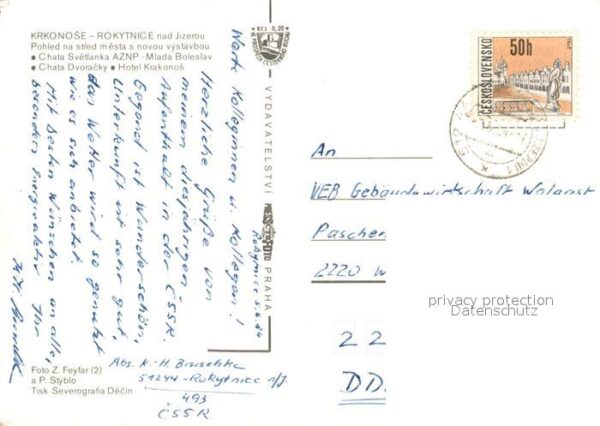 KRKONOŠE – ROKYTNICE nad Jizerou
Pohled na střed města s novou výstavbou
● Chata Světlanka AZNP - Mladá Boleslav
● Chata Dvoračky ● Hotel Krakonoš
Rokytnice 5.6.84
Werte Kolleginnen u. Kollegen!
Herzliche Grüße von
meinem diesjährigen
Aufenthalt in der ČSSR.
Gegend ist wunderschön,
Unterkunft ist sehr gut,
das Wetter wird so genutzt
wie es sich anbietet.
Mit besten Wünschen an alle,
besonders Energieabtlr Ihr
Foto Z. Feyfar (2)
a P. Štyblo
Tisk Severografia Děčín
Kčs 0,20
VYDAVATELSTVÍ PRESSFOTO PRAHA
Abs. K.-H. Bruschke
51244-Rokytnice n/J
493
ČSSR
ČESKOSLOVENSKO
50h
An
VEB Gebäudewirtschaft Wolgast
Pascher
2220 W
privacy protection
Datenschutz
22
DD.